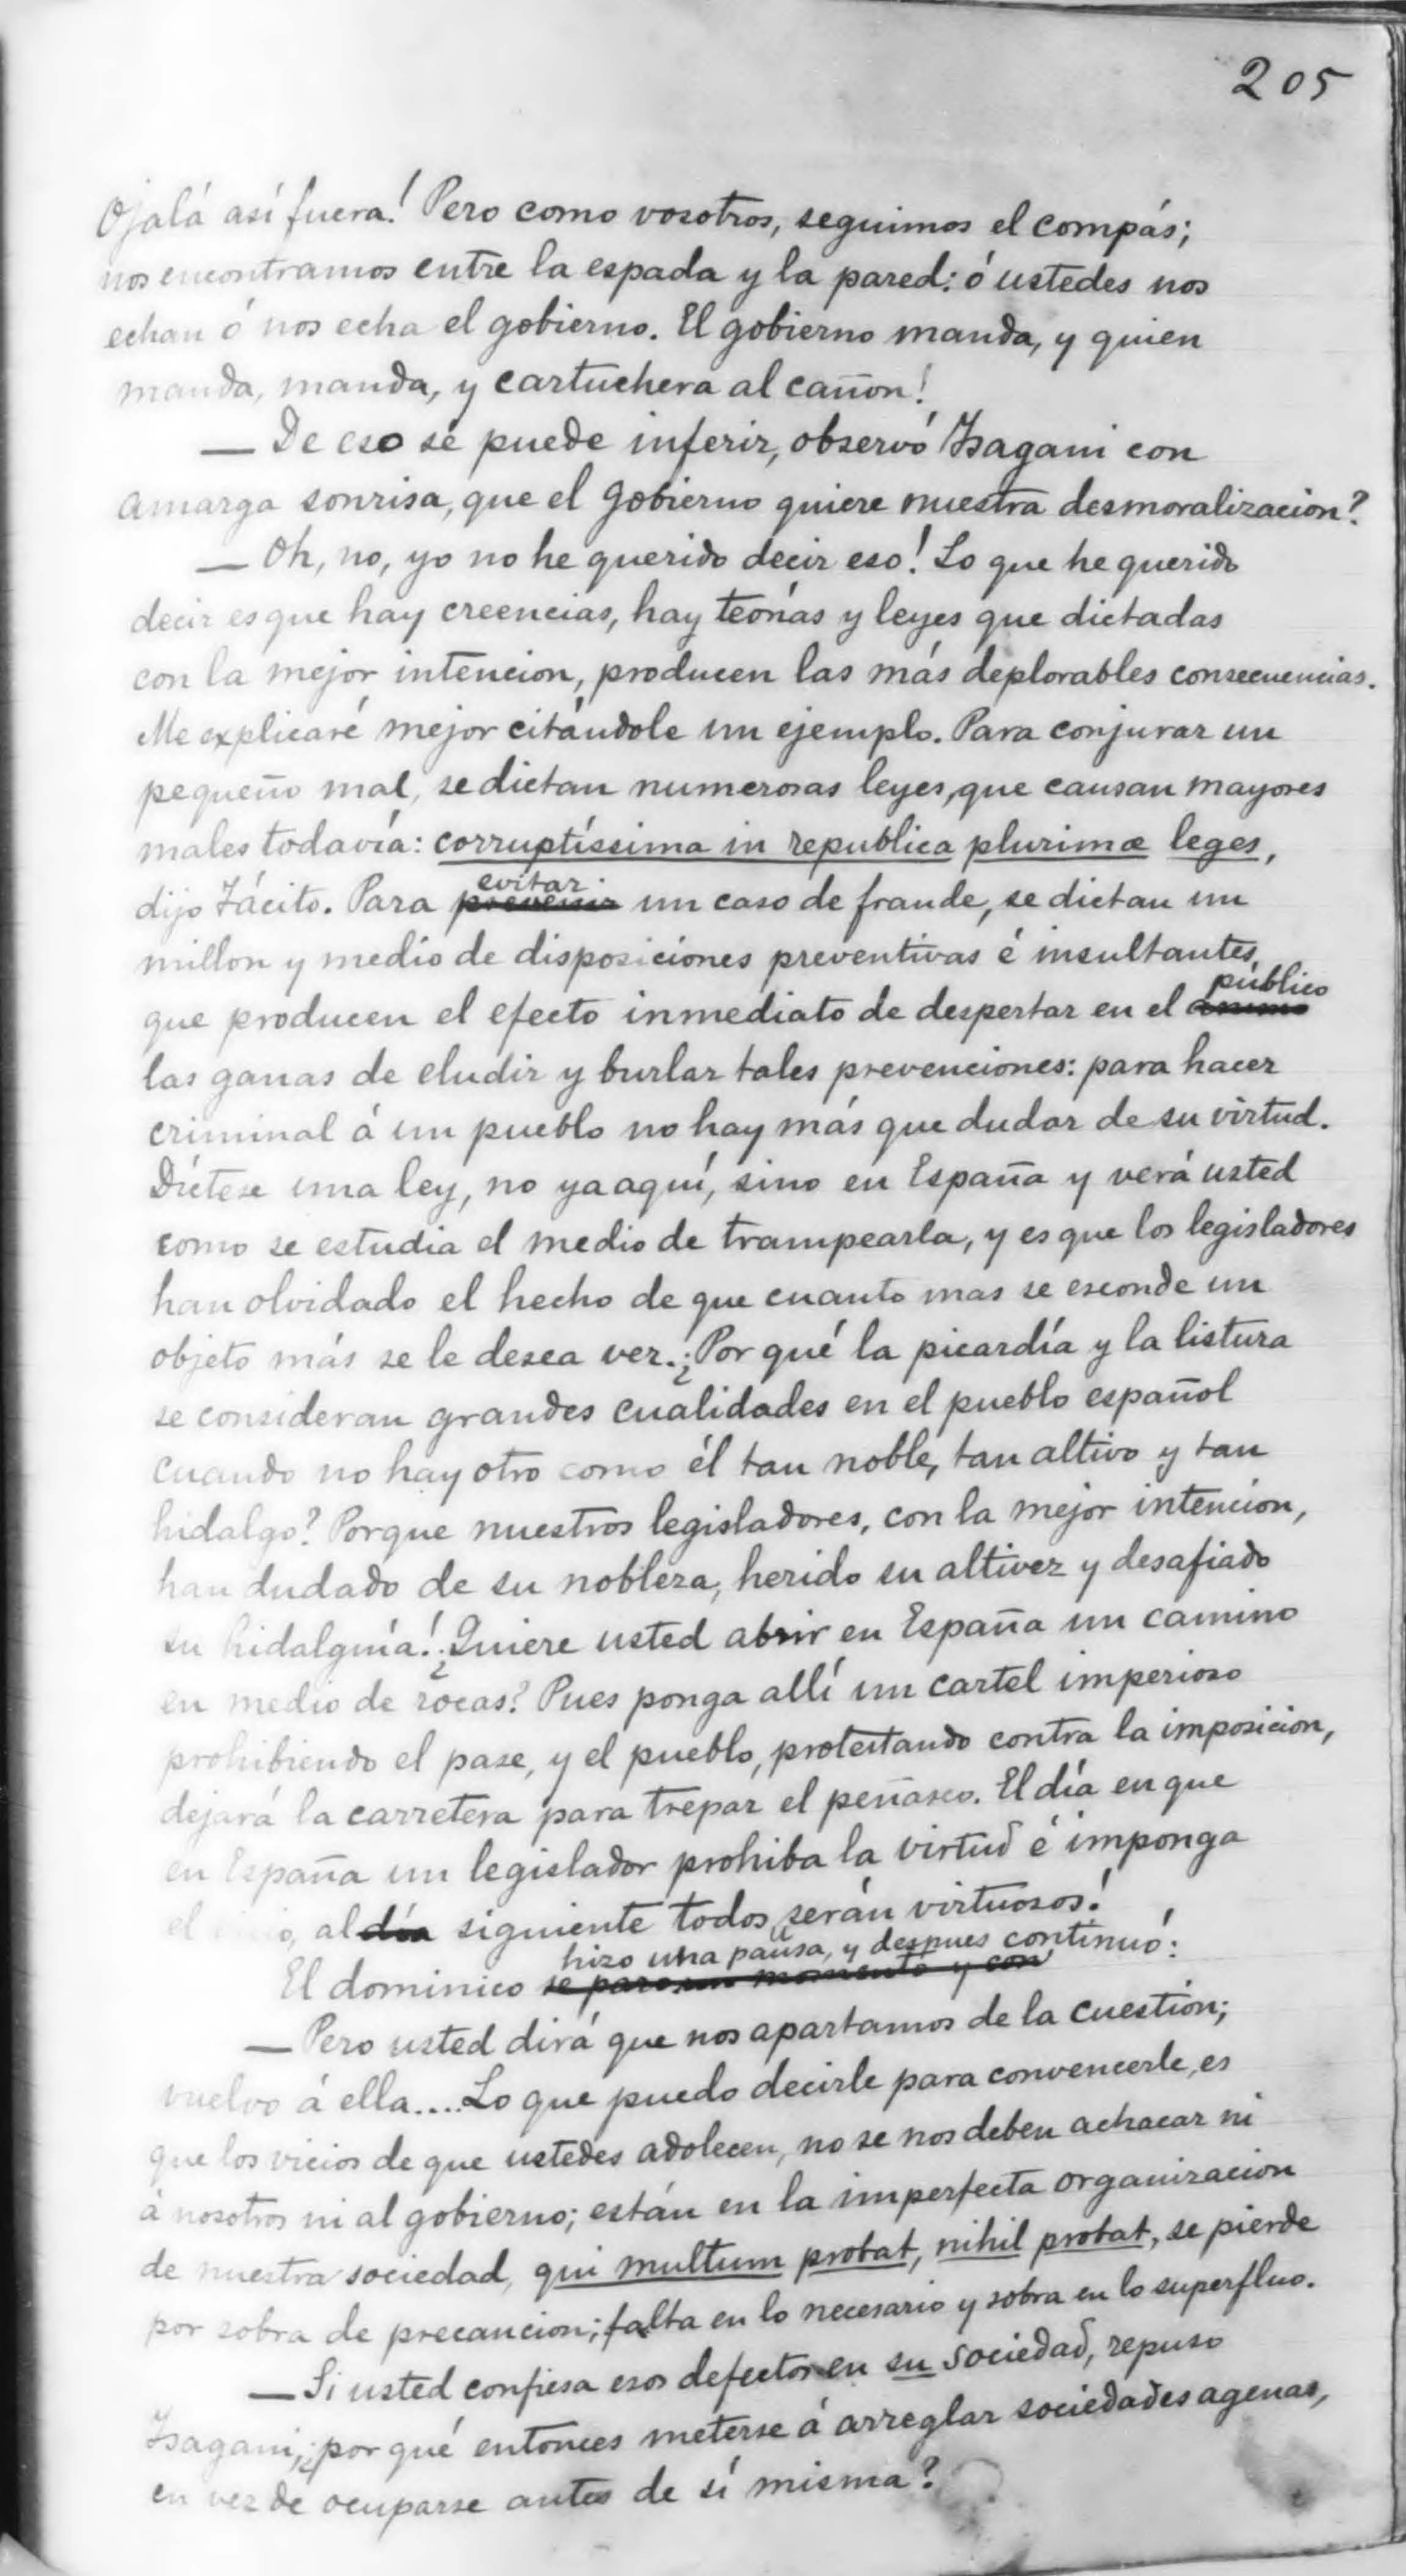 205
Ojalá así fuera! Pero como vosotros, seguimos el compás;
nos encontramos entre la espada y la pared: ó ustedes nos
echan ó nos echa el gobierno. El gobierno manda, y quien
manda, manda, y cartuchera al cañon!
— De eso se puede inferir, observó Isagani con
amarga sonrisa, que el gobierno quiere nuestra desmoralizacion?
— Oh, no, yo no he querido decir eso! Lo que he querido
decir es que hay creencias, hay teorías y leyes que dictadas
con la mejor intencion, producen las más deplorables consecuencias.
Me explicaré mejor citándole un ejemplo. Para conjurar un
pequeño mal, se dictan numerosas leyes, que causan mayores
males todavía: corruptíssima in republica plurimæ leges,
evitar
dijo Tácito. Para prevenir un caso de fraude, se dictan un
millon y medio de disposiciones preventivas é insultantes,
público
que producen el efecto inmediato de despertar en el ánimo
las ganas de eludir y burlar tales prevenciones: para hacer
criminal á un pueblo no hay más que dudar de su virtud.
Díctese una ley, no ya aquí, sino en España y verá usted
como se estudia el medio de trampearla, y es que los legisladores
han olvidado el hecho de que cuanto mas se esconde un
objeto más se le desea ver. ¿Por qué la picardía y la listura
se consideran grandes cualidades en el pueblo español
cuando no hay otro como él tan noble, tan altivo y tan
hidalgo? Porque nuestros legisladores, con la mejor intencion,
han dudado de su nobleza, herido su altivez y desafiado
su hidalguía! ¿Quiere usted abrir en España un camino
en medio de rocas? Pues ponga allí un cartel imperioso
prohibiendo el pase, y el pueblo, protestando contra la imposicion,
dejará la carretera para trepar el peñasco. El día en que
en España un legislador prohiba la virtud é imponga
el al día siguiente todos serán virtuosos!
hizo una pausa, y despues continuó:
El dominico se paro un momento y con
— Pero usted dirá que nos apartamos de la cuestion;
vuelvo á ella.... Lo que puedo decirle para convencerle, es
que los vicios de que ustedes adolecen, no se nos deben achacar ni
á nosotros ni al gobierno; están en la imperfecta organizacion
de nuestra sociedad, qui multum probat, nihil probat, se pierde
por sobra de precaucion; falta en lo necesario y sobra en lo superfluo.
— Si usted confiesa esos defectos en su sociedad, repuso
Isagani, ¿por qué entonces meterse á arreglar sociedades agenas,
en vez de ocuparse antes de sí misma?